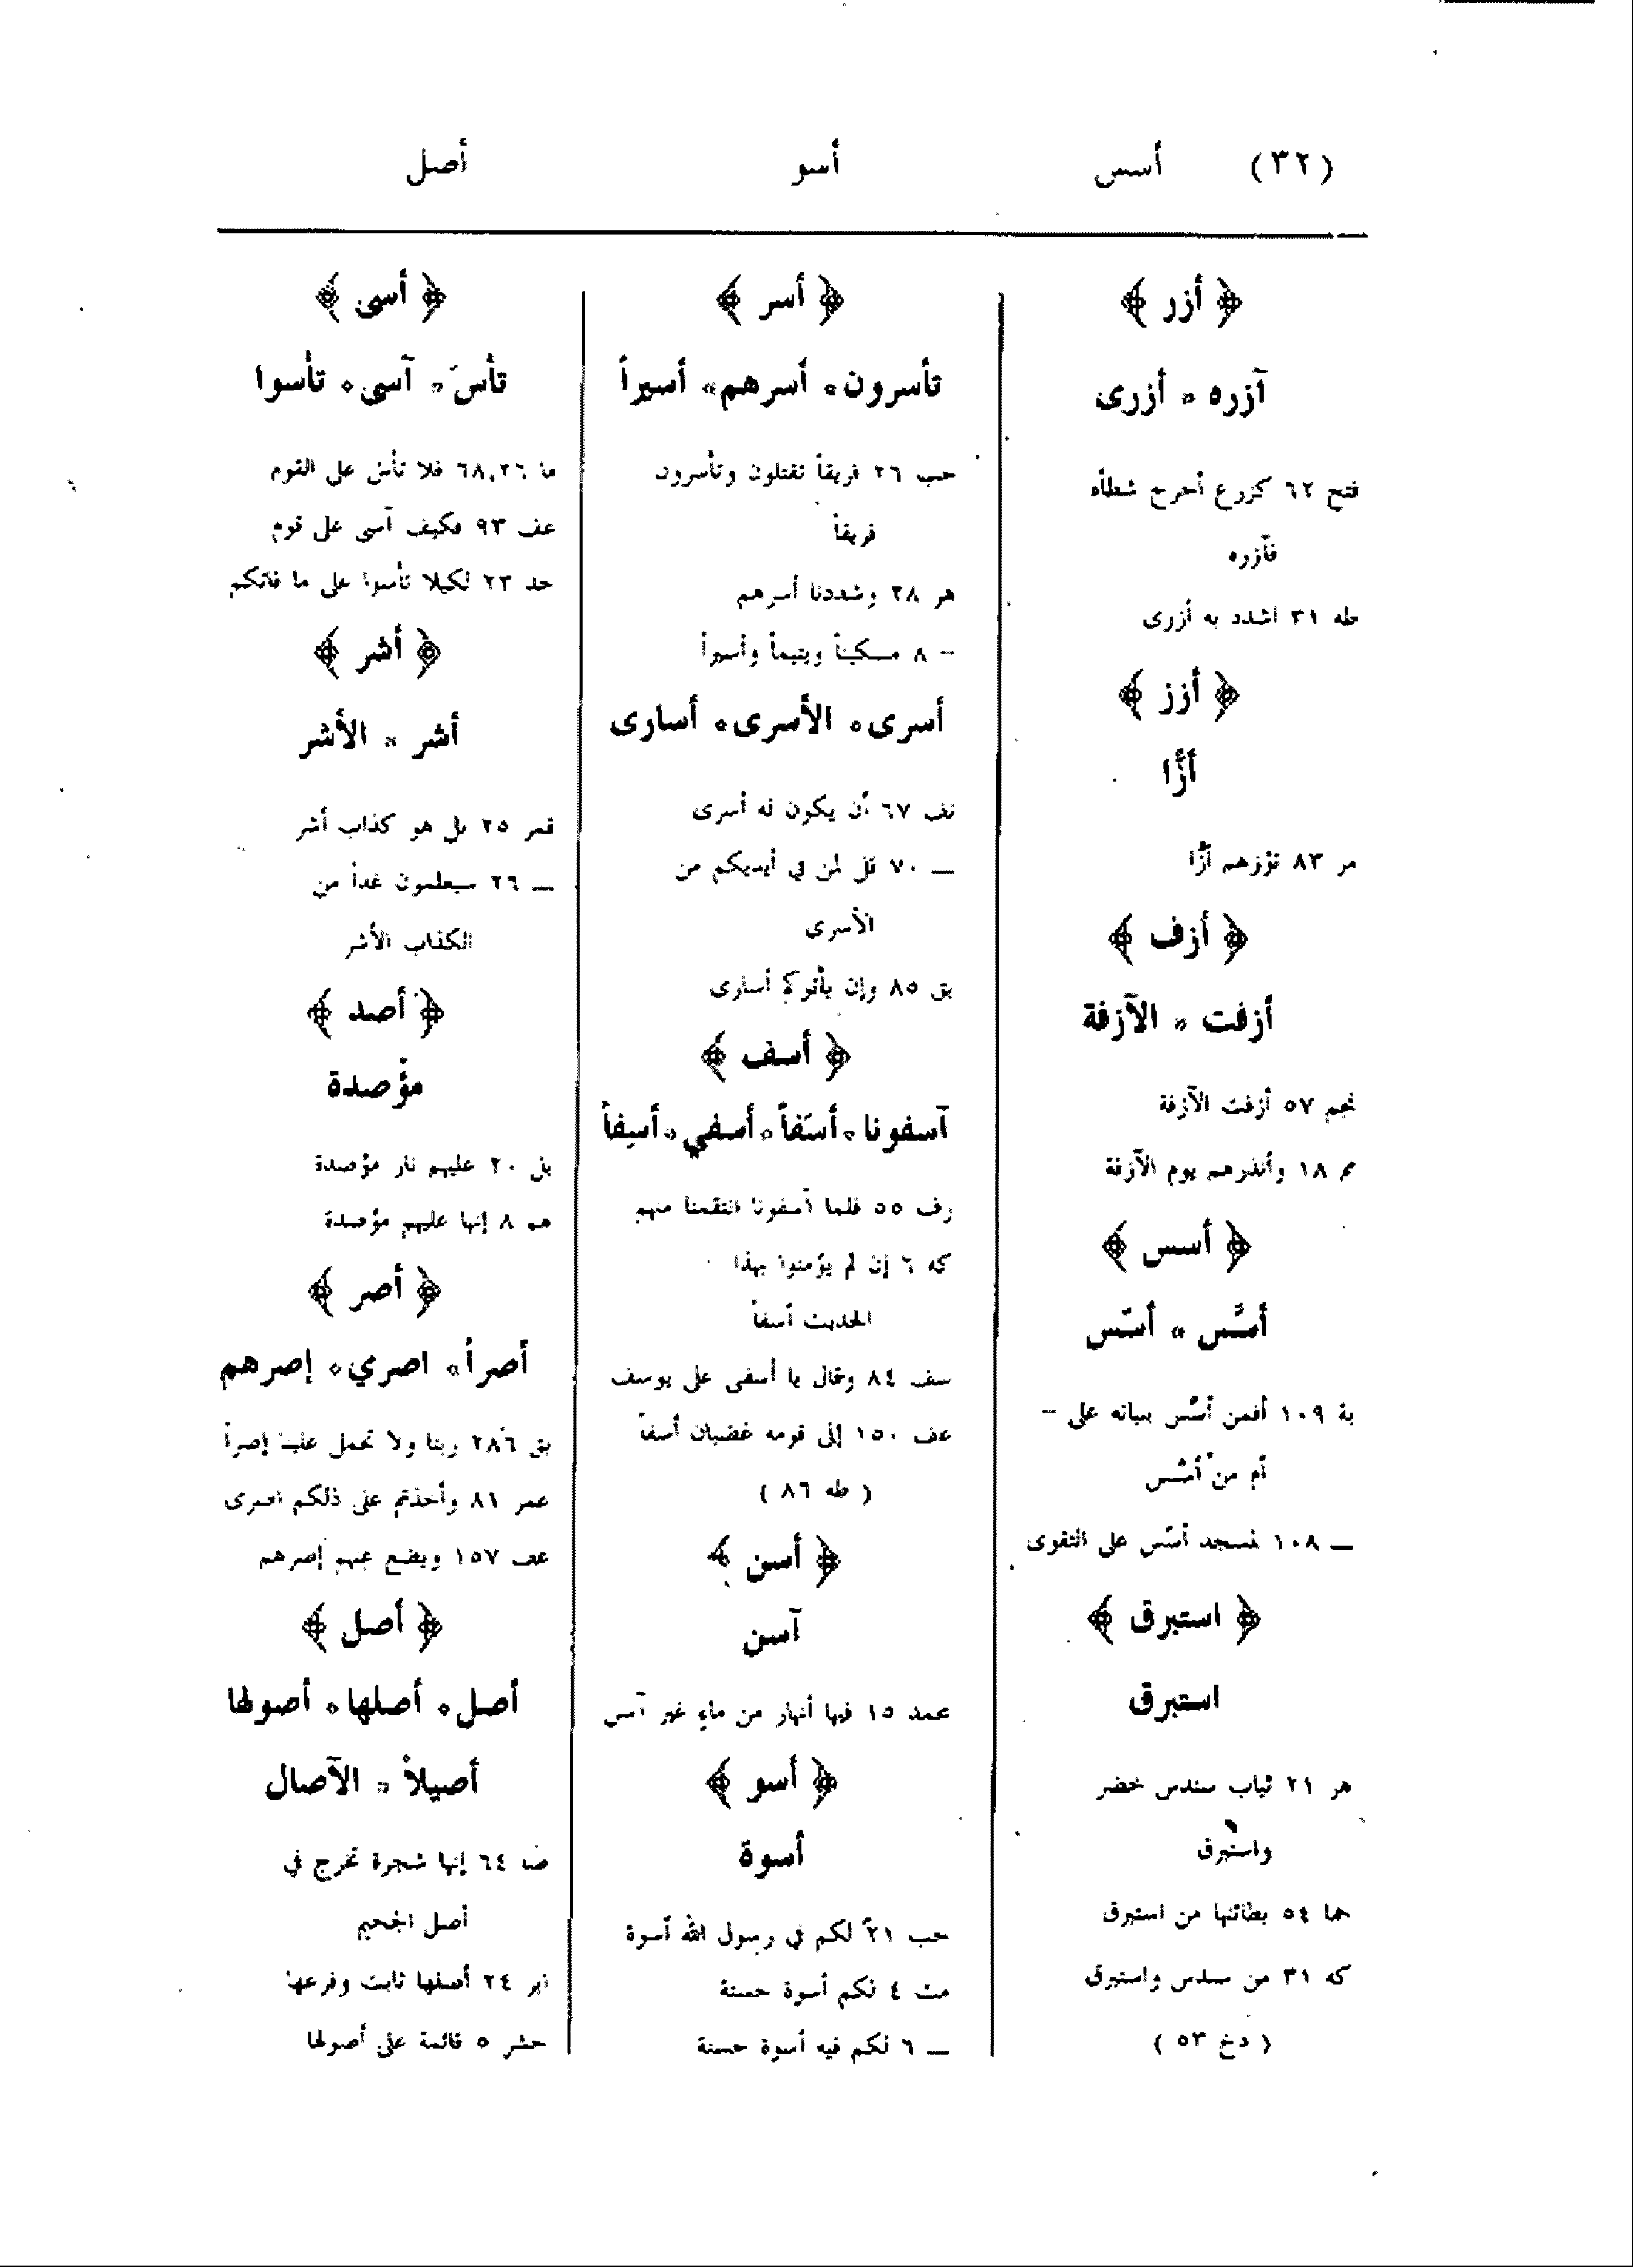 (٣٢) أسس أسو أصل
﴿ أزر ﴾
آزره * أزرى
فتح ٦٢ كزرع أخرج شطأه
فآزره
طه ٣١ اشدد به أزرى
﴿ أزز ﴾
أزًّا
مر ٨٣ تؤزهم أزًّا
﴿ أزف ﴾
أزفت * الآزفة
نجم ٥٧ أزفت الآزفة
مم ١٨ وأنذرهم يوم الآزفة
﴿ أسس ﴾
أسَّس * أسّس
بة ١٠٩ أفمن أسَّس بنيانه على –
أم من أسَّس
— ١٠٨ لمسجد أسّس على التقوى
﴿ استبرق ﴾
استبرق
هر ٢١ ثياب سندس خضر
واستبرق
حما ٥٤ بطائنها من استبرق
كه ٣١ من سندس واستبرق
( دخ ٥٣ )
﴿ أسر ﴾
تأسرون * أسرهم * أسيراً
حب ٢٦ فريقاً تقتلون وتأسرون
فريقاً
هر ٢٨ وشددنا أسرهم
– ٨ مسكيناً ويتيماً وأسيراً
أسرى * الأسرى * أسارى
نف ٦٧ أن يكون له أسرى
— ٧٠ قل لمن في أيديكم من
الأسرى
بق ٨٥ وإن يأتوكم أسارى
﴿ أسف ﴾
آسفونا * أسَفاً * أسفي * أسِفاً
رف ٥٥ فلما آسفونا انتقمنا منهم
كه ٦ إن لم يؤمنوا بهذا
الحديث أسفاً
سف ٨٤ وقال يا أسفى على يوسف
عف ١٥٠ إلى قومه غضبان أسفاً
( طه ٨٦ )
﴿ أسن ﴾
آسن
عمد ١٥ فيها أنهار من ماءٍ غير آسن
﴿ أسو ﴾
أسوة
حب ٢١ لكم في رسول الله أسوة
مت ٤ لكم أسوة حسنة
— ٦ لكم فيه أسوة حسنة
﴿ أسى ﴾
تأسَ * آسى * تأسوا
ما ٦٨,٢٦ فلا تأس على القوم
عف ٩٣ فكيف آسى على قوم
حد ٢٣ لكيلا تأسوا على ما فاتكم
﴿ أشر ﴾
أشر * الأشر
قمر ٢٥ بل هو كذاب أشر
— ٢٦ سيعلمون غداً من
الكذاب الأشر
﴿ أصد ﴾
مؤصدة
بل ٢٠ عليهم نار مؤصدة
هم ٨ إنها عليهم مؤصدة
﴿ أصر ﴾
أصراً * اصري * إصرهم
بق ٢٨٦ ربنا ولا تحمل علينا إصراً
عمر ٨١ وأخذتم على ذلكم اصرى
عف ١٥٧ ويضع عنهم إصرهم
﴿ أصل ﴾
أصل * أصلها * أصولها
أصيلاً * الآصال
صا ٦٤ إنها شجرة تخرج في
أصل الجحيم
ابر ٢٤ أصلها ثابت وفرعها
حشر ٥ قائمة على أصولها